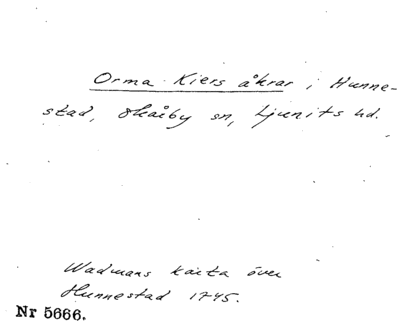 Orma Kiers åkrar i Hunne-
stad, Skårby sn, Ljunits hd.
Wadmans karta över
Hunnestad 1745.
Nr 5666.